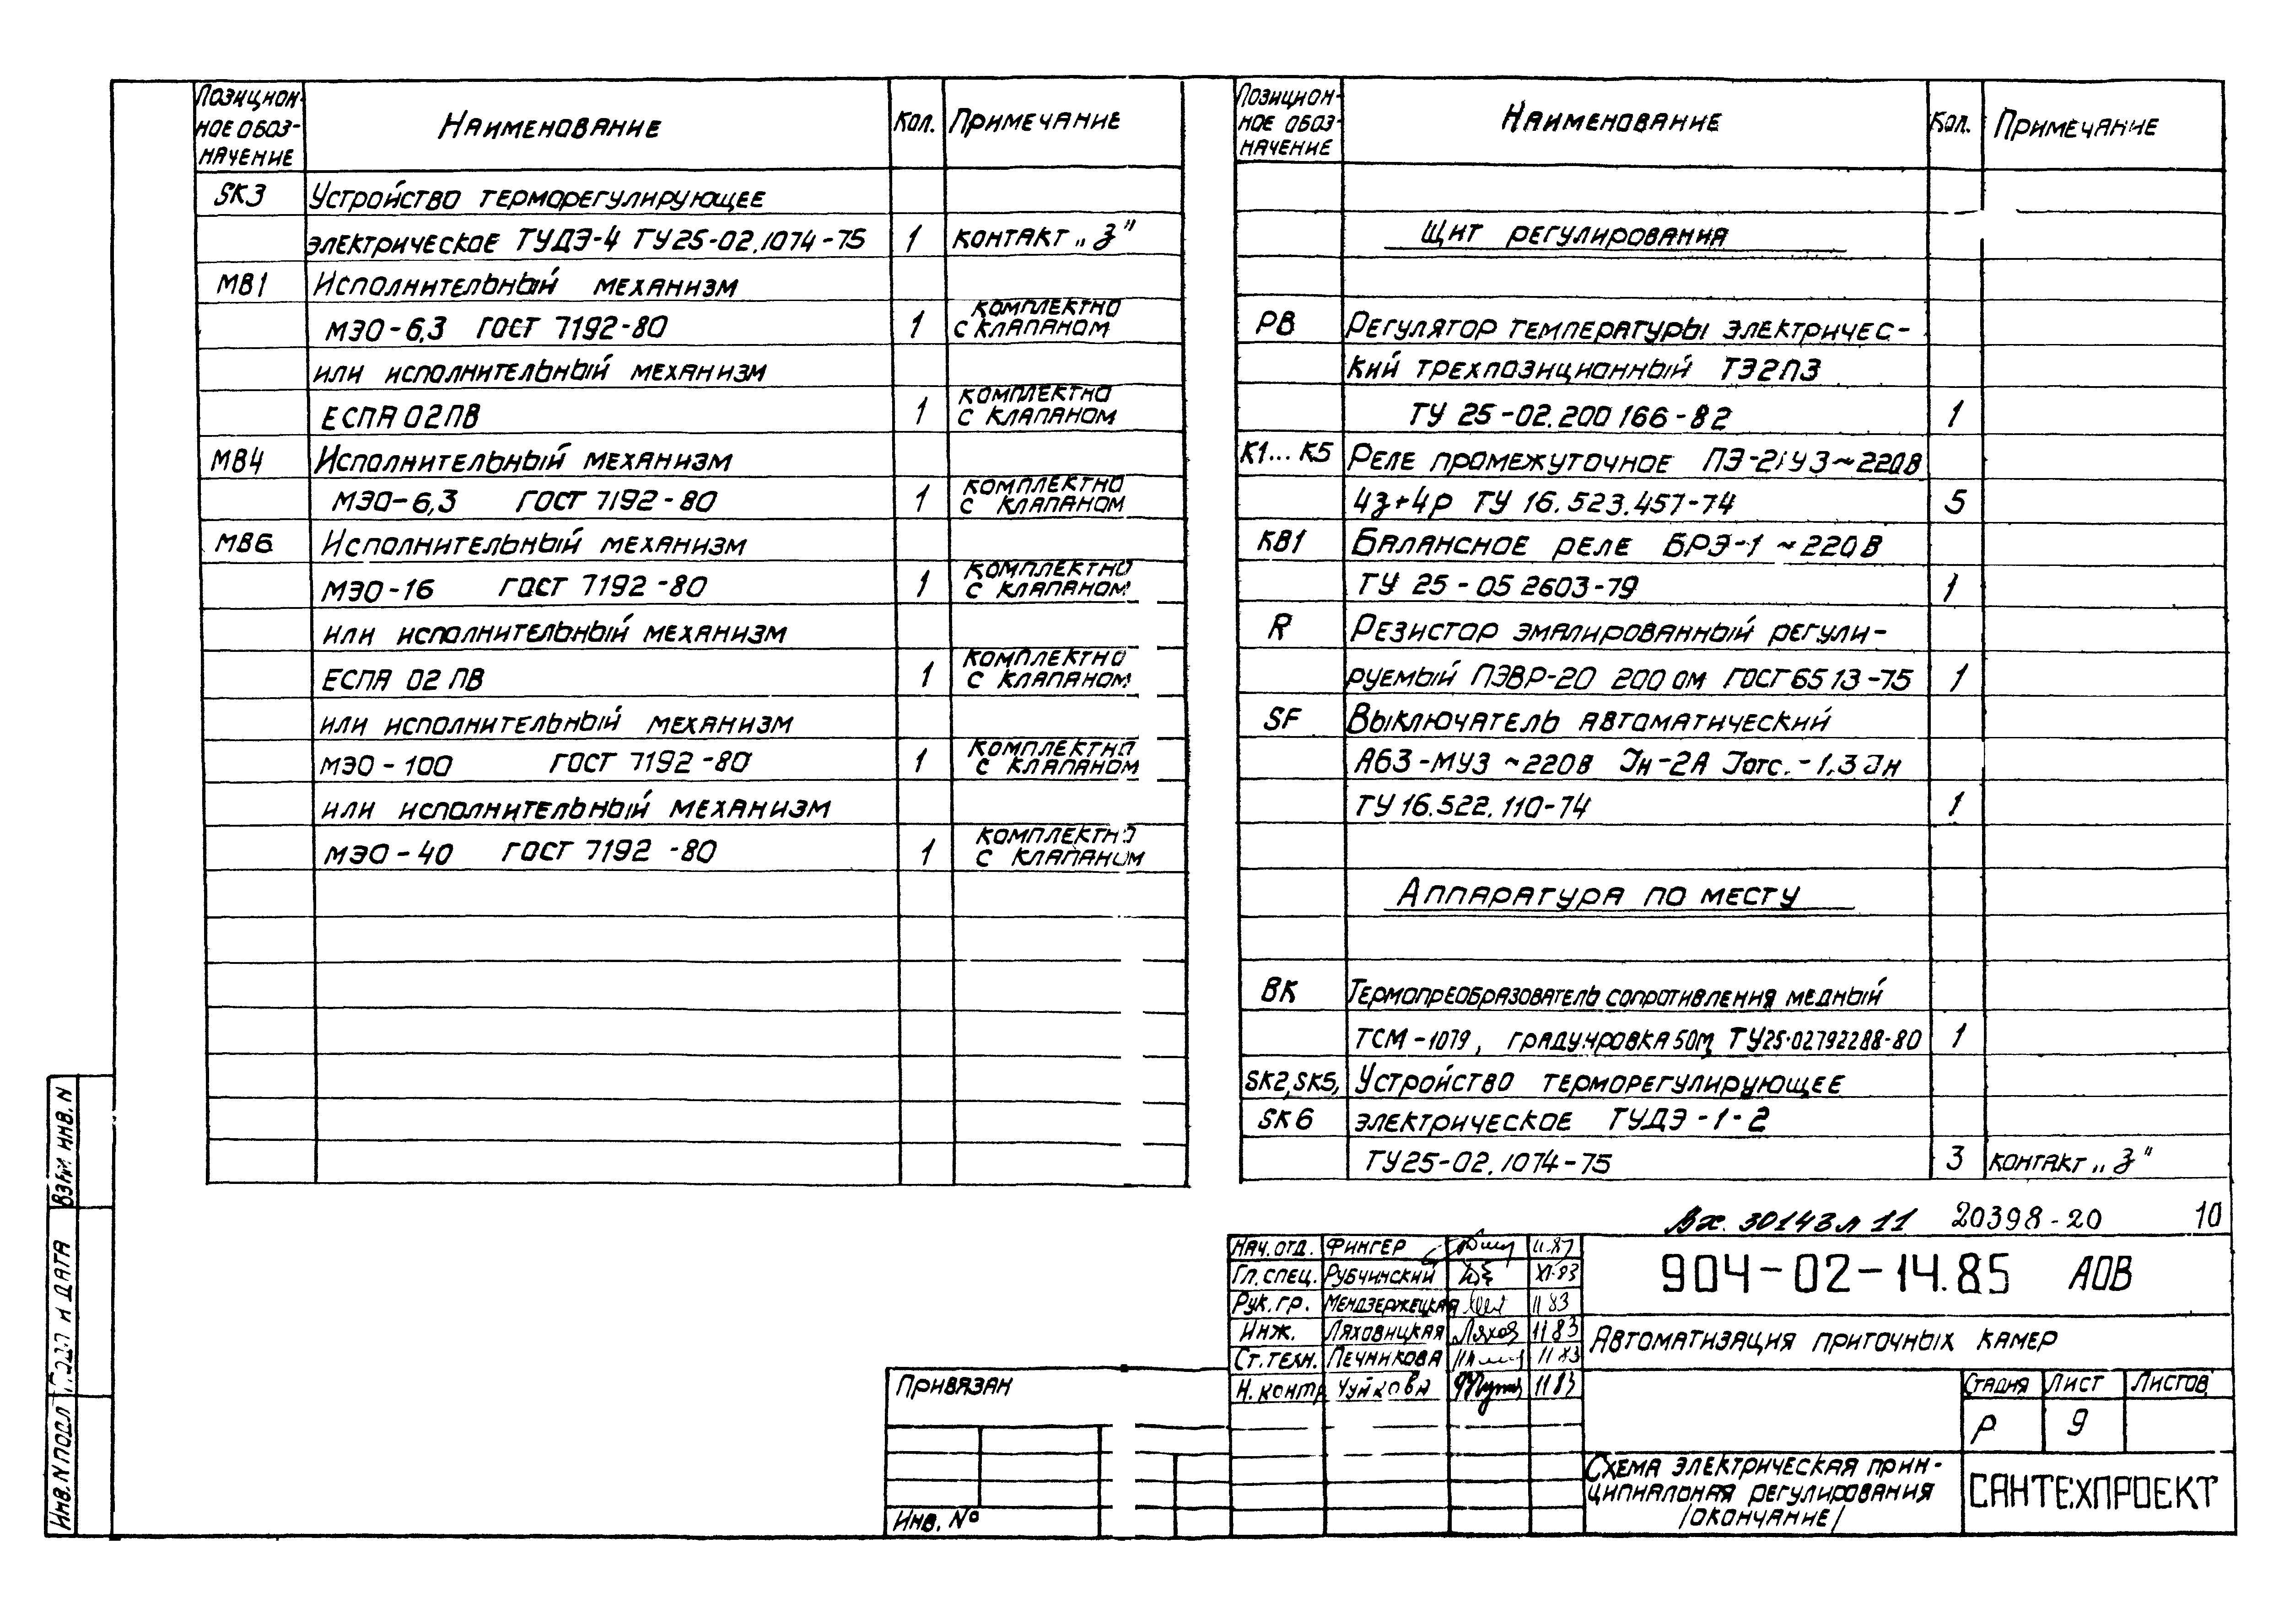 Позицион-
ное обоз-
начение
Наименование
Кол.
Примечание
SK3 Устройство терморегулирующее
электрическое ТУДЭ-4 ТУ25-02.1074-75 1 контакт „з"
МВ1 Исполнительный механизм
МЭО-6,3 ГОСТ 7192-80 1 комплектно
с клапаном
или исполнительный механизм
ЕСПА 02ПВ 1 комплектно
с клапаном
МВ4 Исполнительный механизм
МЭО-6,3 ГОСТ 7192-80 1 комплектно
с клапаном
МВ6 Исполнительный механизм
МЭО-16 ГОСТ 7192-80 1 комплектно
с клапаном
или исполнительный механизм
ЕСПА 02 ПВ 1 комплектно
с клапаном
или исполнительный механизм
МЭО-100 ГОСТ 7192-80 1 комплектно
с клапаном
или исполнительный механизм
МЭО-40 ГОСТ 7192-80 1 комплектно
с клапаном
Позицион-
ное обоз-
начение
Наименование
Кол.
Примечание
Щит регулирования
РВ Регулятор температуры электричес-
кий трехпозиционный ТЭ2П3
ТУ 25-02.200 166-82 1
К1...К5 Реле промежуточное ПЭ-21У3~220В
4з+4р ТУ 16.523.457-74 5
КВ1 Балансное реле БРЭ-1 ~220В
ТУ 25-05 2603-79 1
R Резистор эмалированный регули-
руемый ПЭВР-20 200 ом ГОСТ 6513-75 1
SF Выключатель автоматический
А63-МУ3 ~220В Iн-2А Iотс.-1,3 Iн
ТУ 16.522.110-74 1
Аппаратура по месту
ВК Термопреобразователь сопротивления медный
ТСМ-1079, градуировка 50М, ТУ25-02792288-80 1
SK2,SK5, Устройство терморегулирующее
SK6 электрическое ТУДЭ-1-2
ТУ25-02.1074-75 3 контакт „з"
Вх. 30143 л 11 20398-20 10
Нач. отд. Фингер 11.83
Гл. спец. Рубчинский XI-83
Рук. гр. Мендзержецкая 11 83
Инж. Ляховицкая 11 83
Ст. техн. Печникова 11 83
Н. контр Чуйкова 11 83
904-02-14.85 АОВ
Автоматизация приточных камер
Стадия Лист Листов
Р 9
Схема электрическая прин-
ципиальная регулирования
/окончание/
САНТЕХПРОЕКТ
Привязан
Инв. №
Взам. инв. N
Подп и дата
Инв. N подл